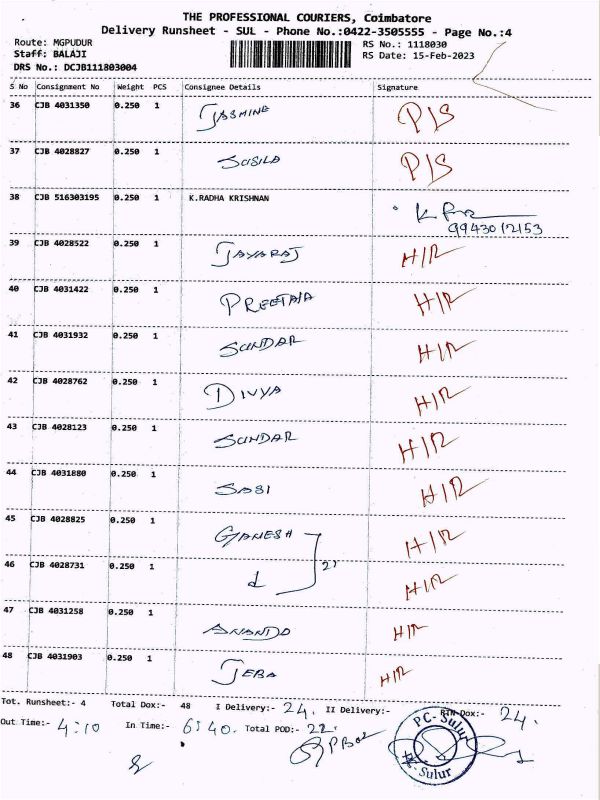 THE PROFESSIONAL COURIERS, Coimbatore
Delivery Runsheet - SUL - Phone No.:0422-3505555 - Page No.:4
Route: MGPUDUR RS No.: 1118030
Staff: BALAJI RS Date: 15-Feb-2023
DRS No.: DCJB111803004
S No Consignment No Weight PCS Consignee Details Signature
36 CJB 4031350 0.250 1 JASMINE P/S
37 CJB 4028827 0.250 1 SUSILA P/S
38 CJB 516303195 0.250 1 K.RADHA KRISHNAN
9943012153
39 CJB 4028522 0.250 1 JAYARAJ H/R
40 CJB 4031422 0.250 1 H/R
41 CJB 4031932 0.250 1 SUNDAR H/R
42 CJB 4028762 0.250 1 DIVYA H/R
43 CJB 4028123 0.250 1 SUNDAR H/R
44 CJB 4031880 0.250 1 SASI H/R
45 CJB 4028825 0.250 1 GANESH H/R
46 CJB 4028731 0.250 1 H/R
47 CJB 4031258 0.250 1 H/R
48 CJB 4031903 0.250 1 JEBA H/R
Tot. Runsheet:- 4 Total Dox:- 48 I Delivery:- 24. II Delivery:- RTN Dox:- 24.
Out Time:- 4:10 In Time:- 6:40. Total POD:- 22.
PC-Sulur
Sulur